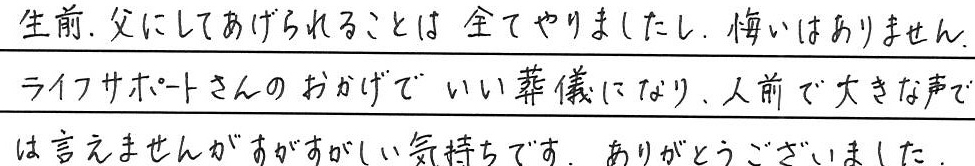 生前、父にしてあげられることは全てやりましたし、悔いはありません。
ライフサポートさんのおかげでいい葬儀になり、人前で大きな声で
は言えませんがすがすがしい気持ちです。ありがとうございました。